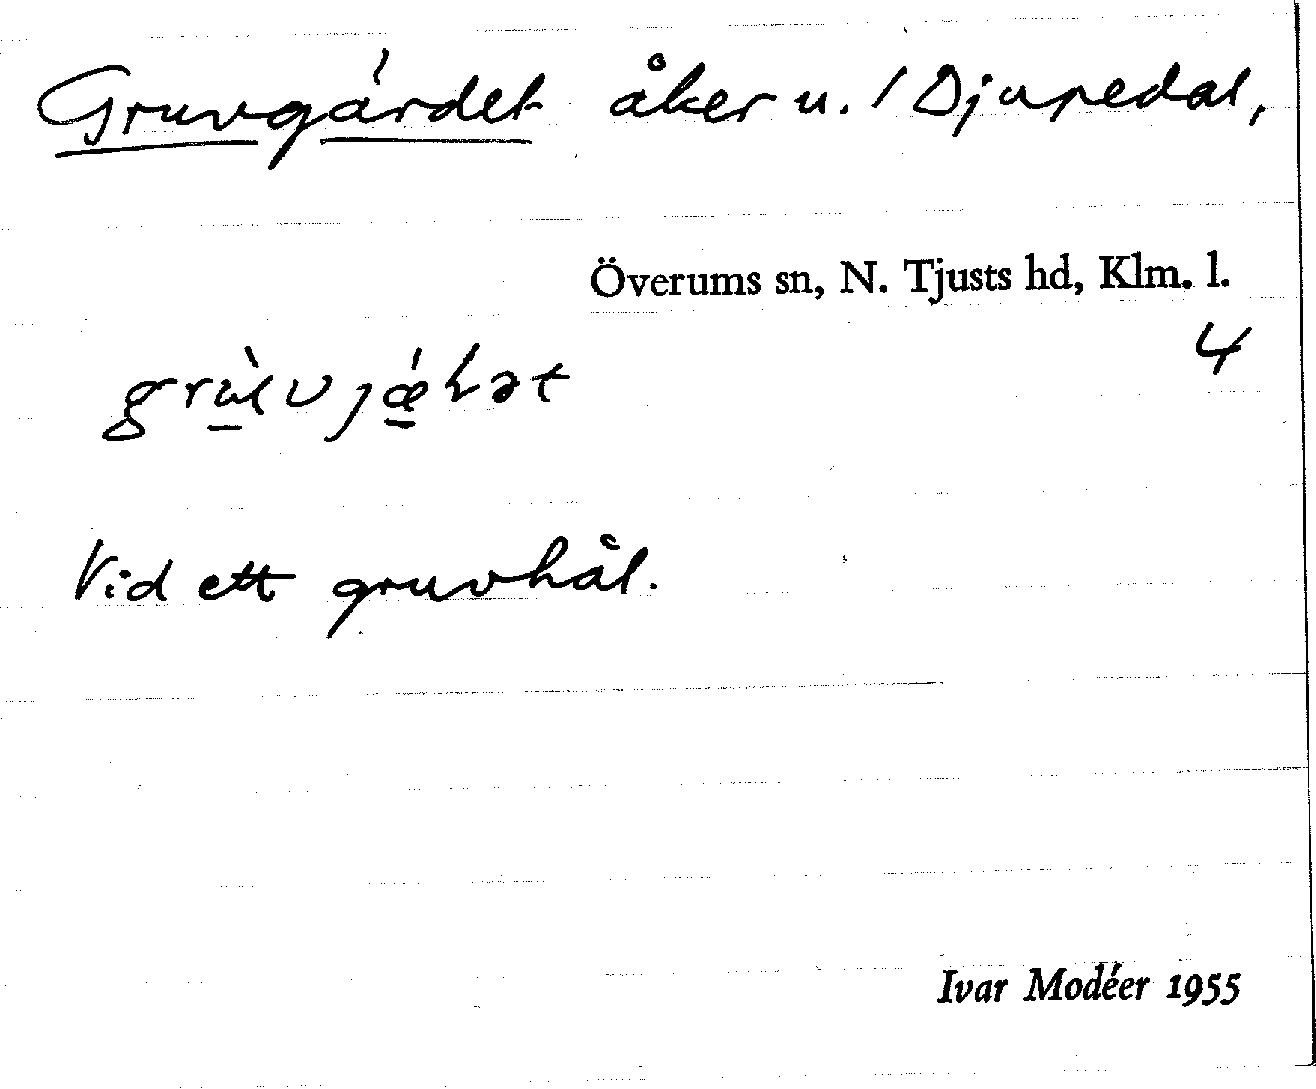 Gruvgärdet åker u. / Djupedal,
Överums sn, N. Tjusts hd, Klm. l.
4
Vid ett gruvhål.
Ivar Modéer 1955